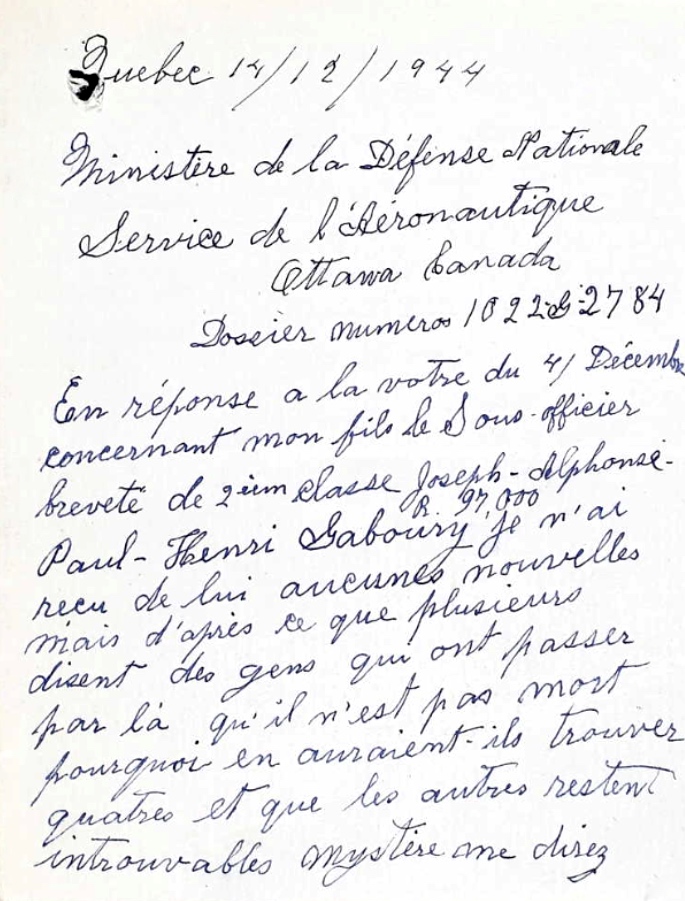 Quebec 14/12/1944
Ministère de la Défense Nationale
Service de l'Aéronautique
Ottawa Canada
Dossier numeros 1022-G-2784
En réponse a la votre du 4/ Décembre
concernant mon fils le Sous-officier
breveté de 2ièm classe Joseph-Alphonse-
R. 97,000
Paul-Henri Gaboury je n'ai
recu de lui aucunes nouvelles
mais d'après ce que plusieurs
disent des gens qui ont passer
par là qu'il n'est pas mort
pourquoi en auraient-ils trouver
quatres et que les autres restent
introuvables mystère me direz